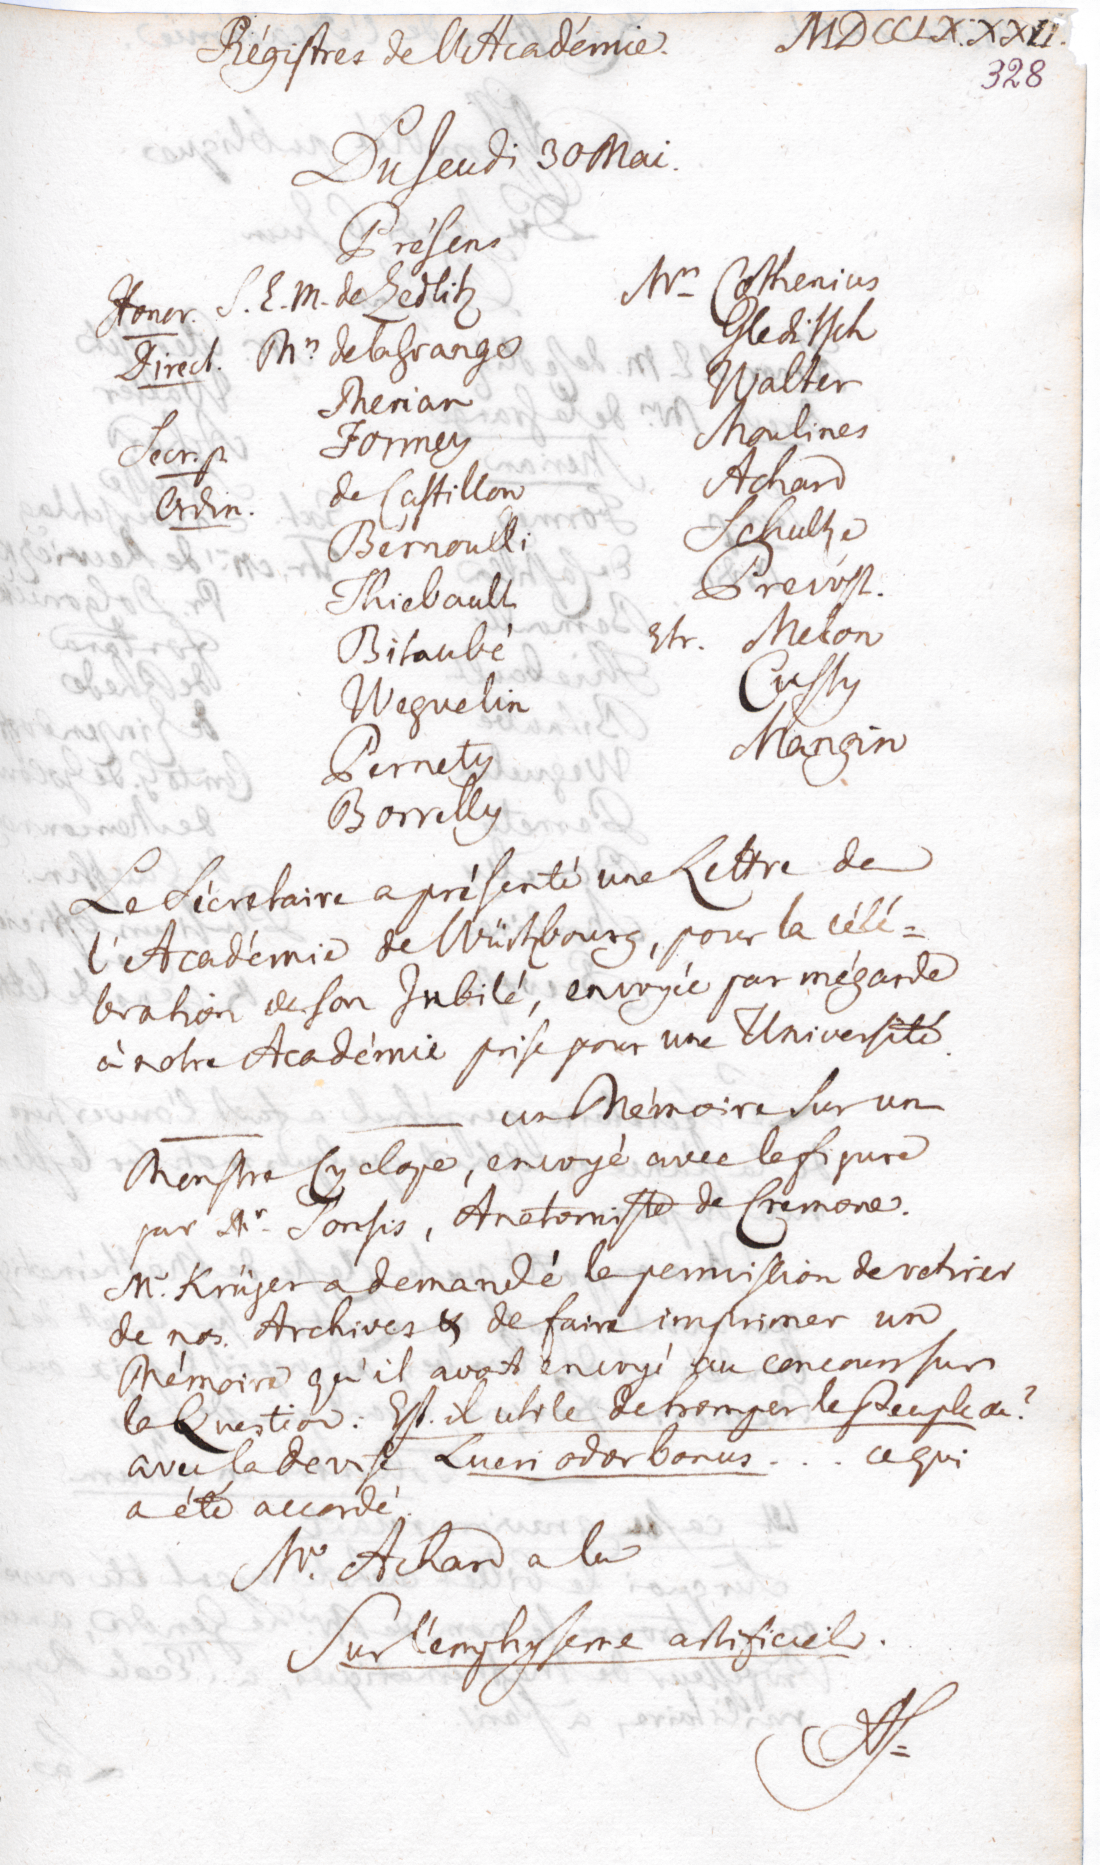 Régistres de l'Académie. MDCCLXXXII.
328
Du Jeudi 30 Mai.
Présens
Honor. S. E. M. de Zedlitz
Direct. Mr. de la Grange
Merian
Secr. p. Formey
Ordin. de Castillon
Bernoulli
Thiebault
Bitaubé
Weguelin
Pernety
Borrelly
Mrs. Cothenius
Gleditsch
Walter
Moulines
Achard
Schultze
Prevost.
Etr. Melon
Cussy
Mangin
Le Sécretaire a présenté une Lettre de
l'Académie de Würtzbourg, pour la célé=
bration de son Jubilé, envoyée par mégarde
à notre Académie prise pour une Université.
un Mémoire sur un
Monstre Cyclope, envoyé avec la figure
par Mr. Sonsis, Anatomiste de Cremone.
Mr. Krüger a demandé la permission de retirer
de nos Archives & de faire imprimer un
Mémoire qu'il avoit envoyé au concours sur
la Question: Est-il utile de tromper le Peuple &c?
avec la devise Lucri odor bonus . . . ce qui
a été accordé.
Mr. Achard a lu
Sur l'emphyseme artificiel.